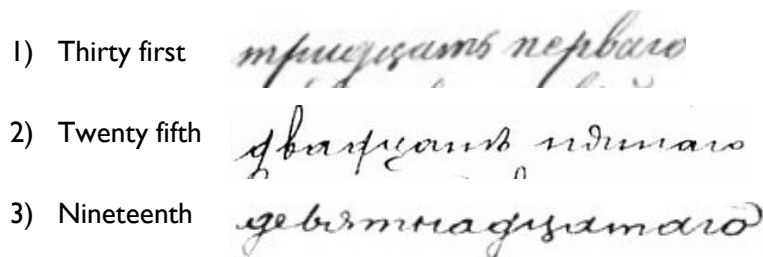 1) Thirty first тридцать перваго
2) Twenty fifth двадцать пятаго
3) Nineteenth девятнадцатаго